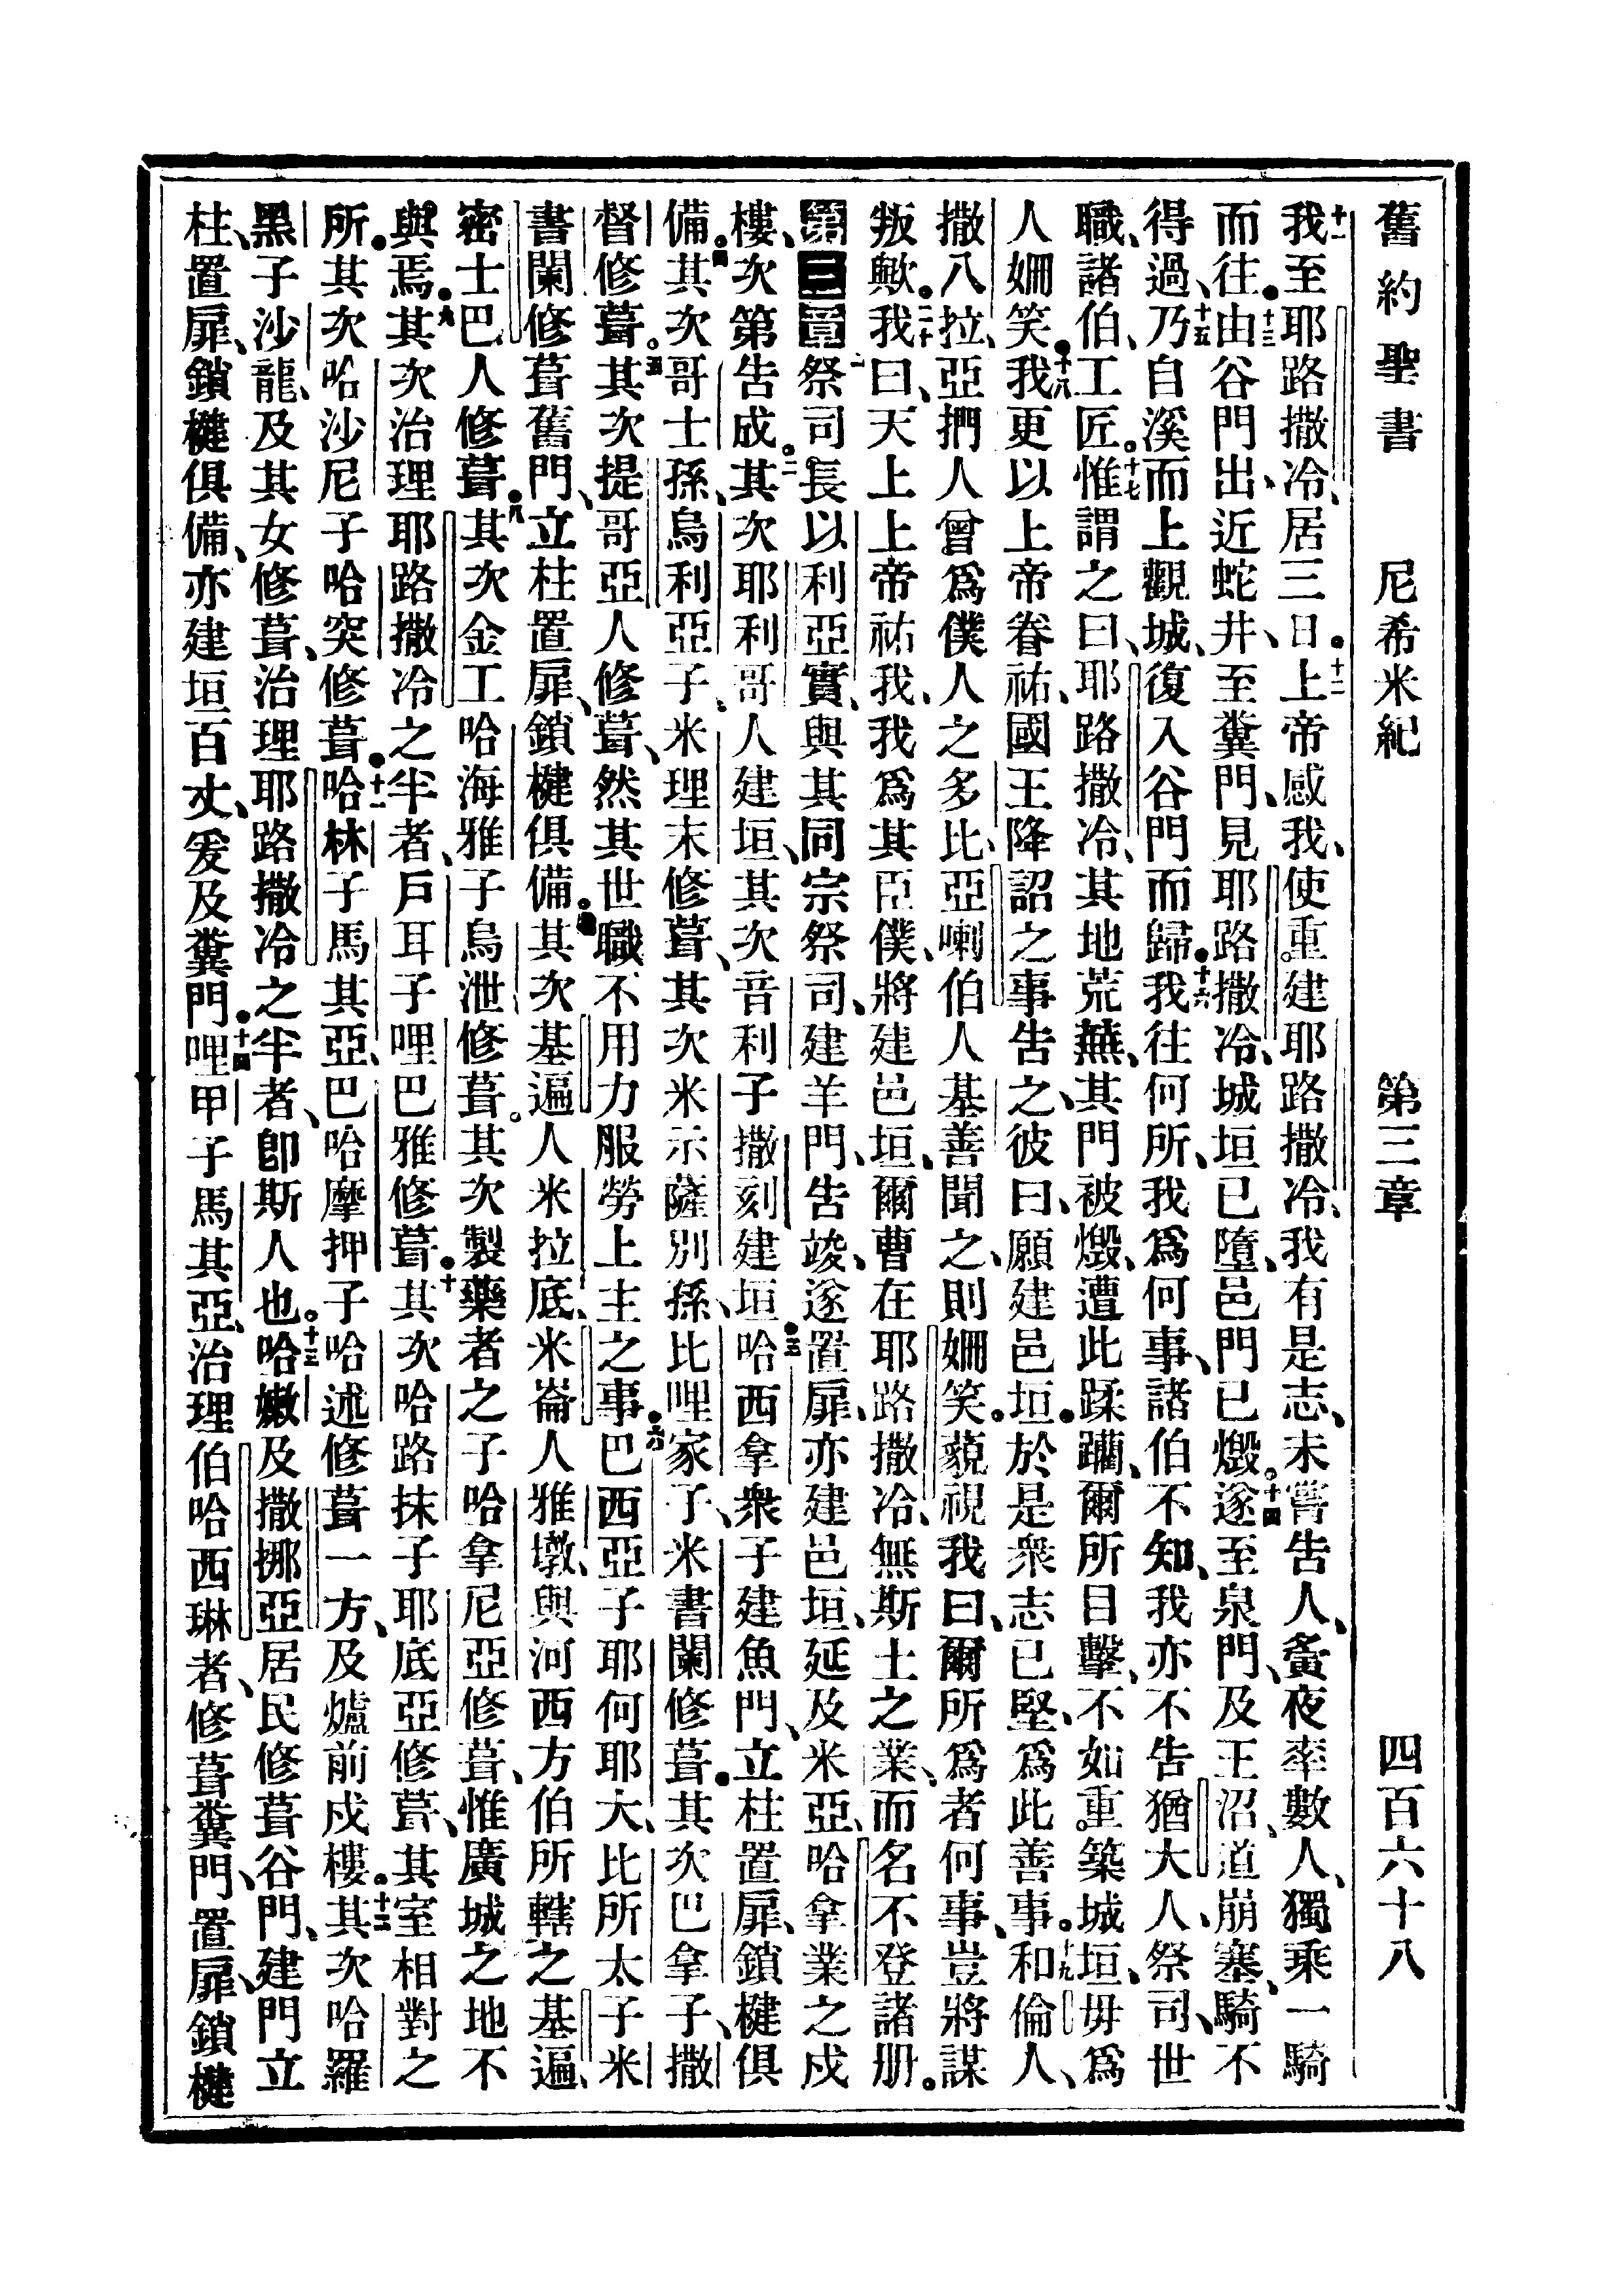 舊約聖書 尼希米紀 第三章 四百六十八
十一我至耶路撒冷、居三日。十二上帝感我、使重建耶路撒冷、我有是志、未嘗告人、夤夜率數人、獨乘一騎
而往。十三由谷門出、近蛇井、至糞門、見耶路撒冷、城垣已墮、邑門已燬。十四遂至泉門、及王沼、道崩塞、騎不
得過、十五乃自溪而上觀城、復入谷門而歸。十六我往何所、我爲何事、諸伯不知、我亦不告猶大人、祭司、世
職、諸伯、工匠。十七惟謂之曰、耶路撒冷、其地荒蕪、其門被燬、遭此蹂躪、爾所目擊、不如重築城垣、毋爲
人姍笑。十八我更以上帝眷祐、國王降詔之事告之、彼曰、願建邑垣。於是衆志已堅、爲此善事。十九和倫人、
撒八拉、亞捫人曾爲僕人之多比、亞喇伯人基善聞之、則姍笑。藐視我曰、爾所爲者何事、豈將謀
叛歟。二十我曰、天上上帝祐我、我爲其臣僕、將建邑垣、爾曹在耶路撒冷、無斯土之業、而名不登諸册。
第三章一祭司長以利亞實、與其同宗祭司、建羊門、告竣、遂置扉、亦建邑垣、延及米亞、哈拿業之戍
樓、次第告成。二其次耶利哥人建垣、其次音利子撒刻建垣。三哈西拿衆子建魚門、立柱置扉、鎖楗俱
備。四其次哥士孫、烏利亞子、米理末修葺、其次米示薩別孫、比哩家子、米書闌修葺。其次巴拿子、撒
督修葺。五其次提哥亞人修葺、然其世職不用力服勞上主之事。六巴西亞子耶何耶大、比所太子米
書闌修葺舊門、立柱置扉、鎖楗俱備。七其次基遍人米拉底、米崙人雅墩、與河西方伯所轄之基遍、
密士巴人修葺。八其次金工哈海雅子烏泄修葺。其次製藥者之子哈拿尼亞修葺、惟廣城之地不
與焉。九其次治理耶路撒冷之半者、戶耳子哩巴雅修葺。十其次哈路抹子耶底亞修葺、其室相對之
所。其次哈沙尼子哈突修葺。十一哈林子馬其亞、巴哈摩押子哈述修葺一方、及爐前戍樓。十二其次哈羅
黑子沙龍、及其女修葺、治理耶路撒冷之半者、卽斯人也。十三哈嫩及撒挪亞居民修葺谷門、建門立
柱、置扉、鎖楗俱備、亦建垣百丈、爰及糞門。十四哩甲子馬其亞、治理伯哈西琳者、修葺糞門、置扉、鎖楗